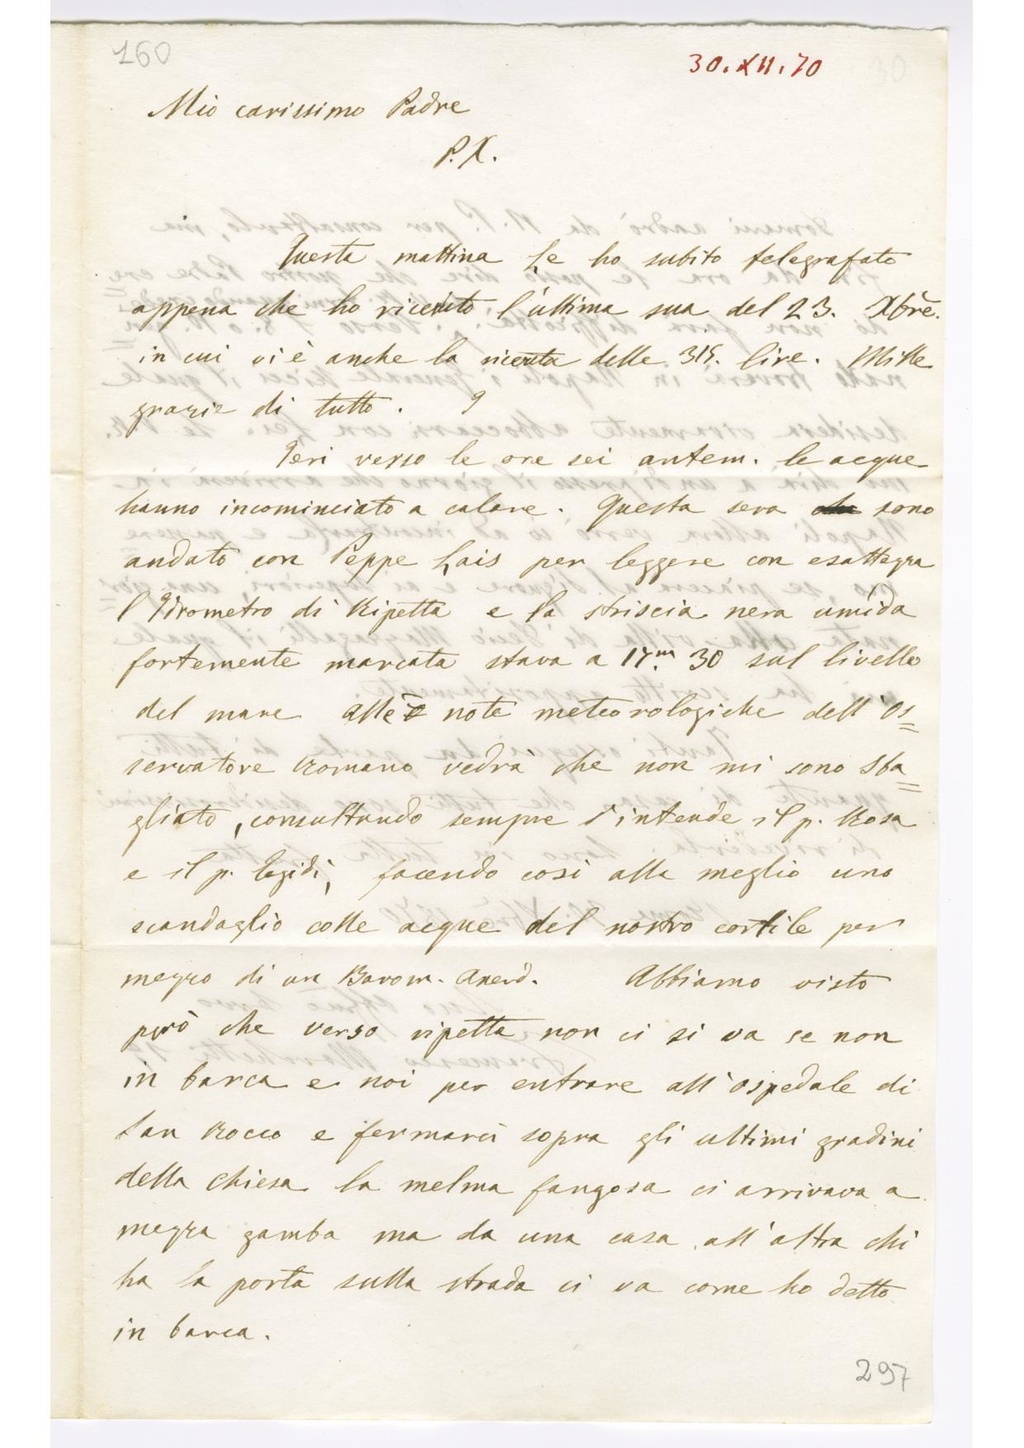 160
30.XII.70
Mio carissimo Padre
P.X.
Questa mattina Le ho subito telegrafato
appena che ho riceduto l'ultima sua del 23. Xbre.
in cui vi è anche la ricevuta delle 315. lire. Mille
grazie di tutto.
Ieri verso le ore sei antem. le acque
hanno incominciato a calare. Questa sera sono
andato con Peppe Lais per leggere con esattezza
l'Idrometro di Ripetta e la striscia nera umida
fortemente marcata stava a 17.m 30 sul livello
del mare. Alle note meteorologiche dell'Os=
servatore Romano vedrà che non mi sono sba=
gliato, consultando sempre s'intende il p. Rosa
e il p. Egidi, facendo così alla meglio uno
scandaglio colle acque del nostro cortile per
mezzo di un Barom. Aneroid. Abbiamo visto
però che verso ripetta non ci si va se non
in barca e noi per entrare all'ospedale di
San Rocco e fermarci sopra gli ultimi gradini
della chiesa la melma fangosa ci arrivava a
mezza gamba ma da una casa all'altra chi
ha la porta sulla strada ci va come ho detto
in barca.
297